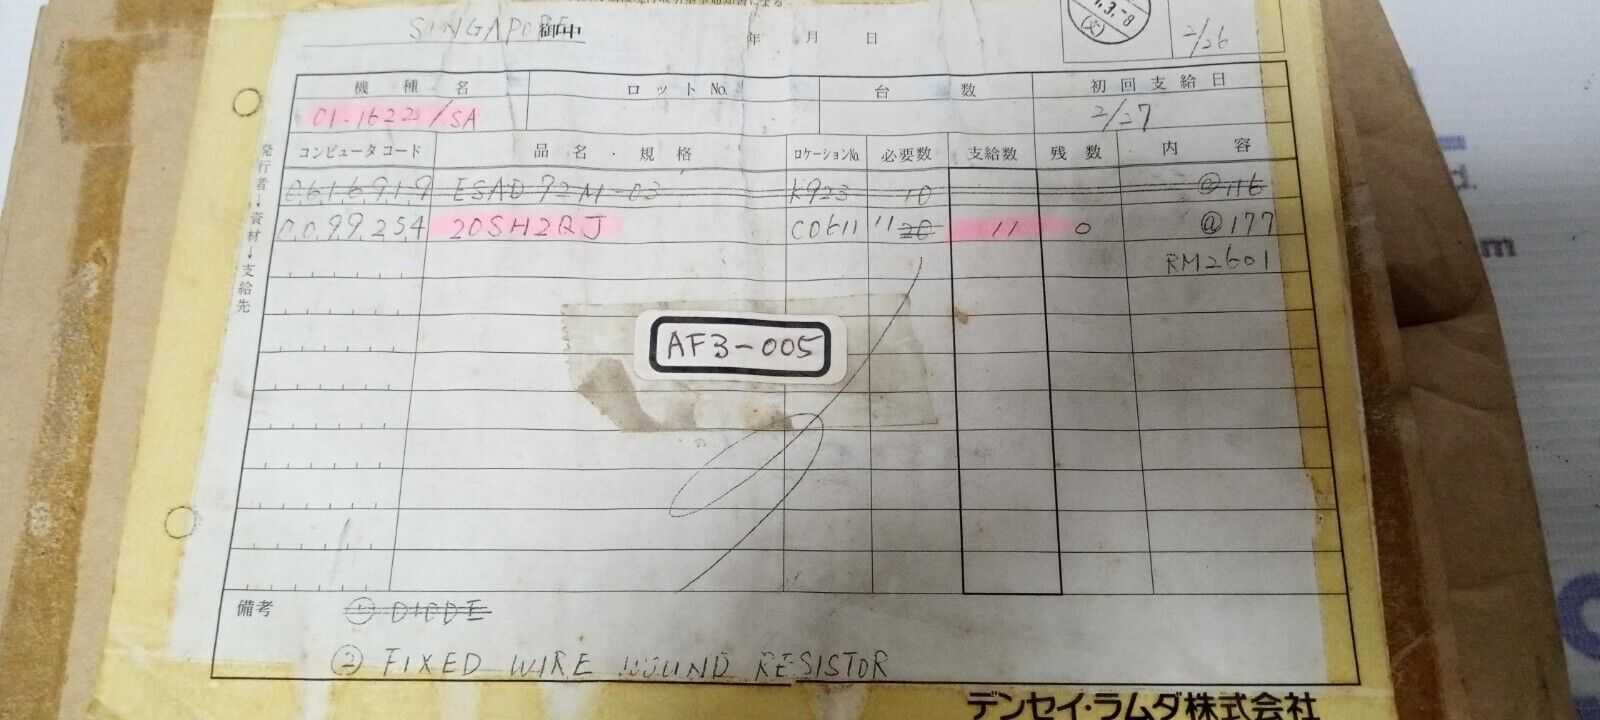 SINGAPORE 御中 年 月 日
3.-8
(文)
2/26
機種名 ロット No. 台数 初回支給日
01-16220/SA 2/27
コンピュータコード 品名・規格 ロケーションNo. 必要数 支給数 残数 内容
0616919 ESAD 92M-03 K923 10 @116
0099254 20SH2QJ C0611 11 20 11 0 @177
RM2601
発行者→資材→支給先
AF3-005
備考 ① DIODE
② FIXED WIRE WOUND RESISTOR
デンセイ・ラムダ株式会社
d.
om